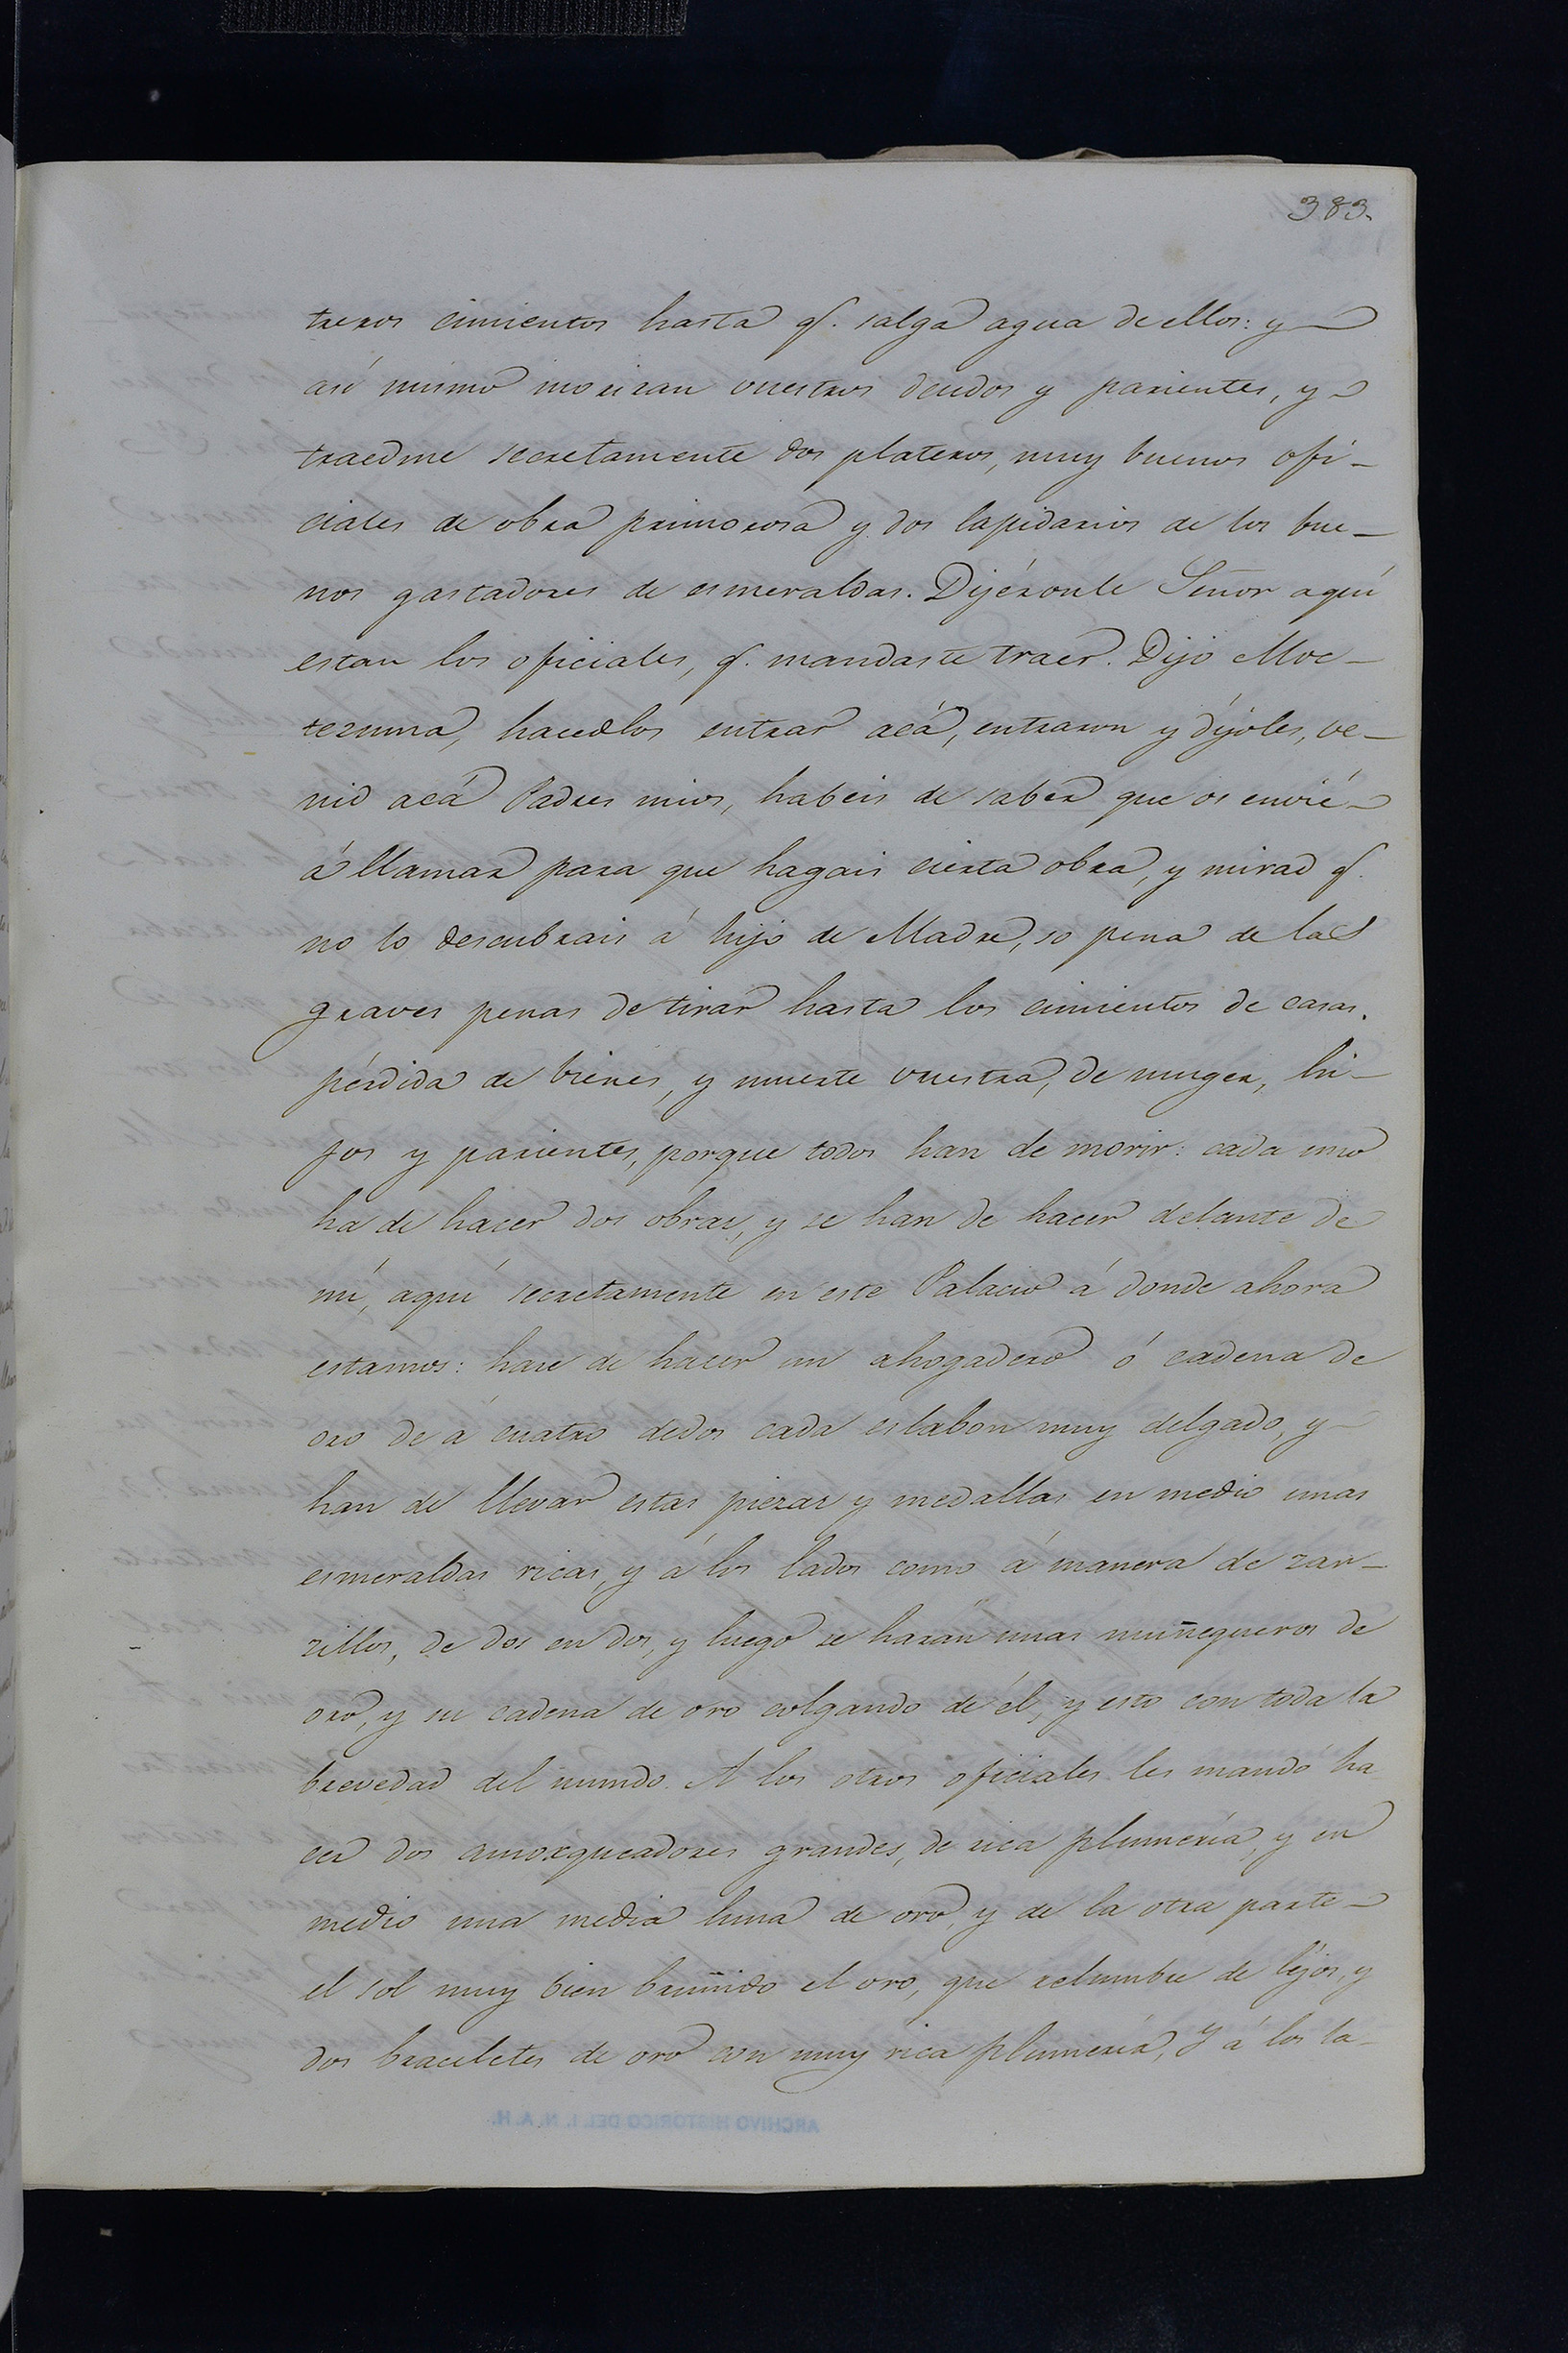 383.
treros cimientos hasta q.e salga agua de ellos: y
asi mismo moriran vuestros deudos y parientes, y
traedme secretamente dos plateros, muy buenos ofi-
ciales de obra primorosa y dos lapidarios de los bue-
nos gastadores de esmeraldas. Dijéronle Señor aquí
estan los oficiales, q.e mandaste traer. Dijo Moc-
tezuma, hacedlos entrar acá, entraron y díjoles, ve-
nid acá Padres mios, habeis de saber que os envié
á llamar para que hagais cierta obra, y mirad q.e
no lo descubrais á hijo de Madre, so pena de las
graves penas de tirar hasta los cimientos de casas,
pérdida de bienes, y muerte vuestra, de muger, hi-
jos y parientes, porque todos han de morir: cada uno
ha de hacer dos obras, y se han de hacer delante de
mí, aquí secretamente en este Palacio á donde ahora
estamos: hase de hacer un ahogadero ó cadena de
oro de á cuatro dedos cada eslabon muy delgado, y
han de llevar estas piezas y medallas en medio unas
esmeraldas ricas, y á los lados como á manera de zar-
zillos, de dos en dos, y luego se harán unas muñequeros de
oro, y su cadena de oro colgando de él, y esto con toda la
brevedad del mundo. A los otros oficiales les mandó ha
cer dos amoxqueadores grandes, de rica plumería, y en
medio una media luna de oro, y de la otra parte
el sol muy bien bruñido el oro, que relumbre de léjos, y
dos braceletes de oro con muy rica plumería, Y á los la-
ARCHIVO HISTORICO DEL I. N. A. H.